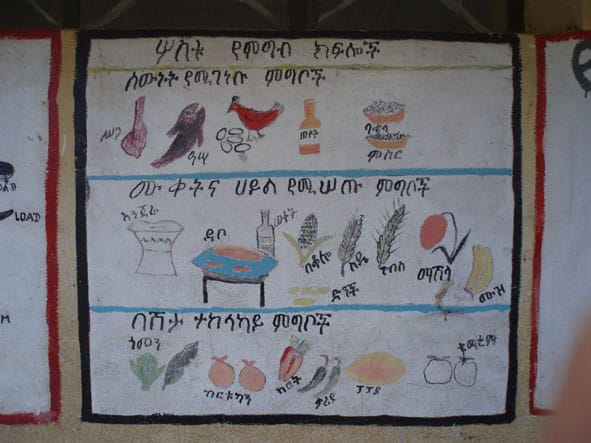 ሦስቱ የምግብ ክፍሎች
ሰውነት የሚገነቡ ምግቦች
ሥጋ
ዓሣ
ወተት
ባቄላ
ምስር
ሙቀትና ሀይል የሚሠጡ ምግቦች
እንጀራ
ዳቦ
ወተት
በቆሎ
ስንዴ
ገብስ
ማሽላ
ሙዝ
ድንች
በሽታ ተከላካይ ምግቦች
ጎመን
ብርቱካን
ካሮት
ቃሪያ
ፓፓያ
ቲማቲም
LOAD